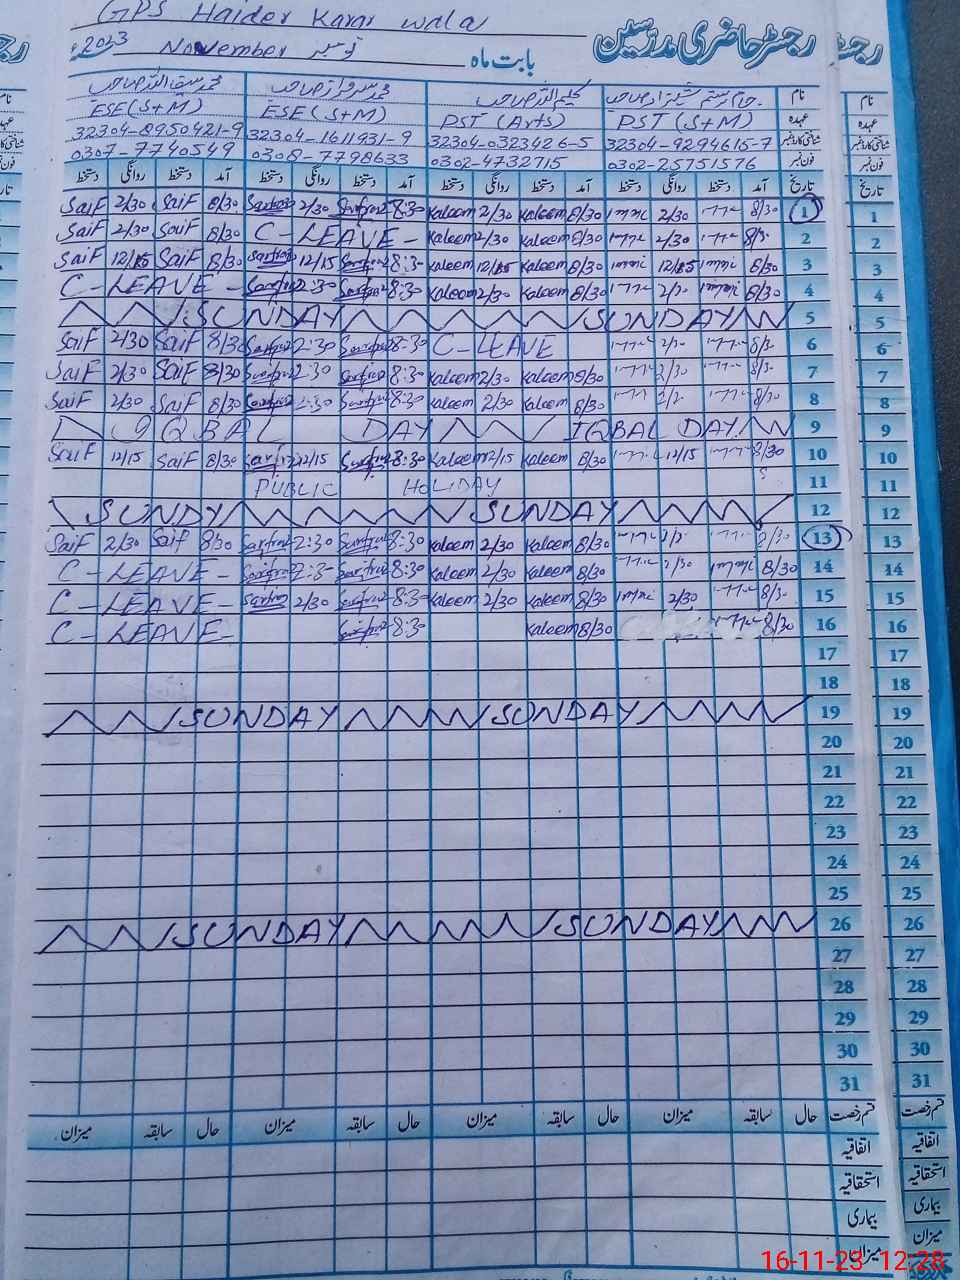 GPS Haider Karar wala
رجسٹر حاضری مدرسین
بابت ماہ نومبر November 2023ء
نام
عہدہ PST (S+M) PST (Arts) ESE (S+M) ESE (S+M)
شناختی کارڈ نمبر 32304-9294615-7 32304-0323426-5 32304-1611931-9 32304-8950421-9
فون نمبر 0302-25751576 0302-4732715 0308-7798633 0307-7740549
تاریخ آمد دستخط روانگی دستخط آمد دستخط روانگی دستخط آمد دستخط روانگی دستخط آمد دستخط روانگی دستخط
SaiF 2/30 SaiF 8/30 Sarfraz 2/30 Sarfraz 8:30 Kaleem 2/30 Kaleem 8/30 2/30 8/30 1
SaiF 2/30 SaiF 8/30 C-LEAVE- Kaleem 2/30 Kaleem 8/30 2/30 2
SaiF 12/15 SaiF 8/30 Sarfraz 12/15 Sarfraz 8:30 Kaleem 12/15 Kaleem 8/30 12/15 8/30 3
C-LEAVE- Sarfraz 2:30 Sarfraz 8:30 Kaleem 2/30 Kaleem 8/30 8/30 4
SUNDAY SUNDAY 5
SaiF 2/30 SaiF 8/30 Sarfraz 2:30 Sarfraz 8:30 C-LEAVE 6
SaiF 2/30 SaiF 8/30 Sarfraz 2:30 Sarfraz 8:30 Kaleem 2/30 Kaleem 8/30 7
SaiF 2/30 SaiF 8/30 Sarfraz 2:30 Sarfraz 8:30 Kaleem 2/30 Kaleem 8/30 8/30 8
IQBAL DAY IQBAL DAY 9
SaiF 12/15 SaiF 8/30 Sarfraz 12/15 Sarfraz 8:30 Kaleem 12/15 Kaleem 8/30 12/15 8/30 10
PUBLIC HOLIDAY 11
SUNDY SUNDAY 12
SaiF 2/30 Saif 8/30 Sarfraz 2:30 Sarfraz 8:30 Kaleem 2/30 Kaleem 8/30 13
C-LEAVE- Sarfraz Sarfraz 8:30 Kaleem 2/30 Kaleem 8/30 2/30 8/30 14
C-LEAVE- Sarfraz 2/30 Sarfraz 8:30 Kaleem 2/30 Kaleem 8/30 2/30 15
C-LEAVE- Sarfraz 8:30 Kaleem 8/30 8/30 16
17
18
SUNDAY SUNDAY 19
20
21
22
23
24
25
SUNDAY SUNDAY 26
27
28
29
30
31
قسم رخصت حال سابقہ میزان حال سابقہ میزان حال سابقہ میزان حال سابقہ میزان
اتفاقیہ
استحقاقیہ
بیماری
میزان
نام
عہدہ
فون نمبر
تاریخ
1
2
3
4
5
6
7
8
9
10
11
12
13
14
15
16
17
18
19
20
21
22
23
24
25
26
27
28
29
30
31
قسم رخصت
اتفاقیہ
استحقاقیہ
بیماری
میزان
16-11-23 12:28